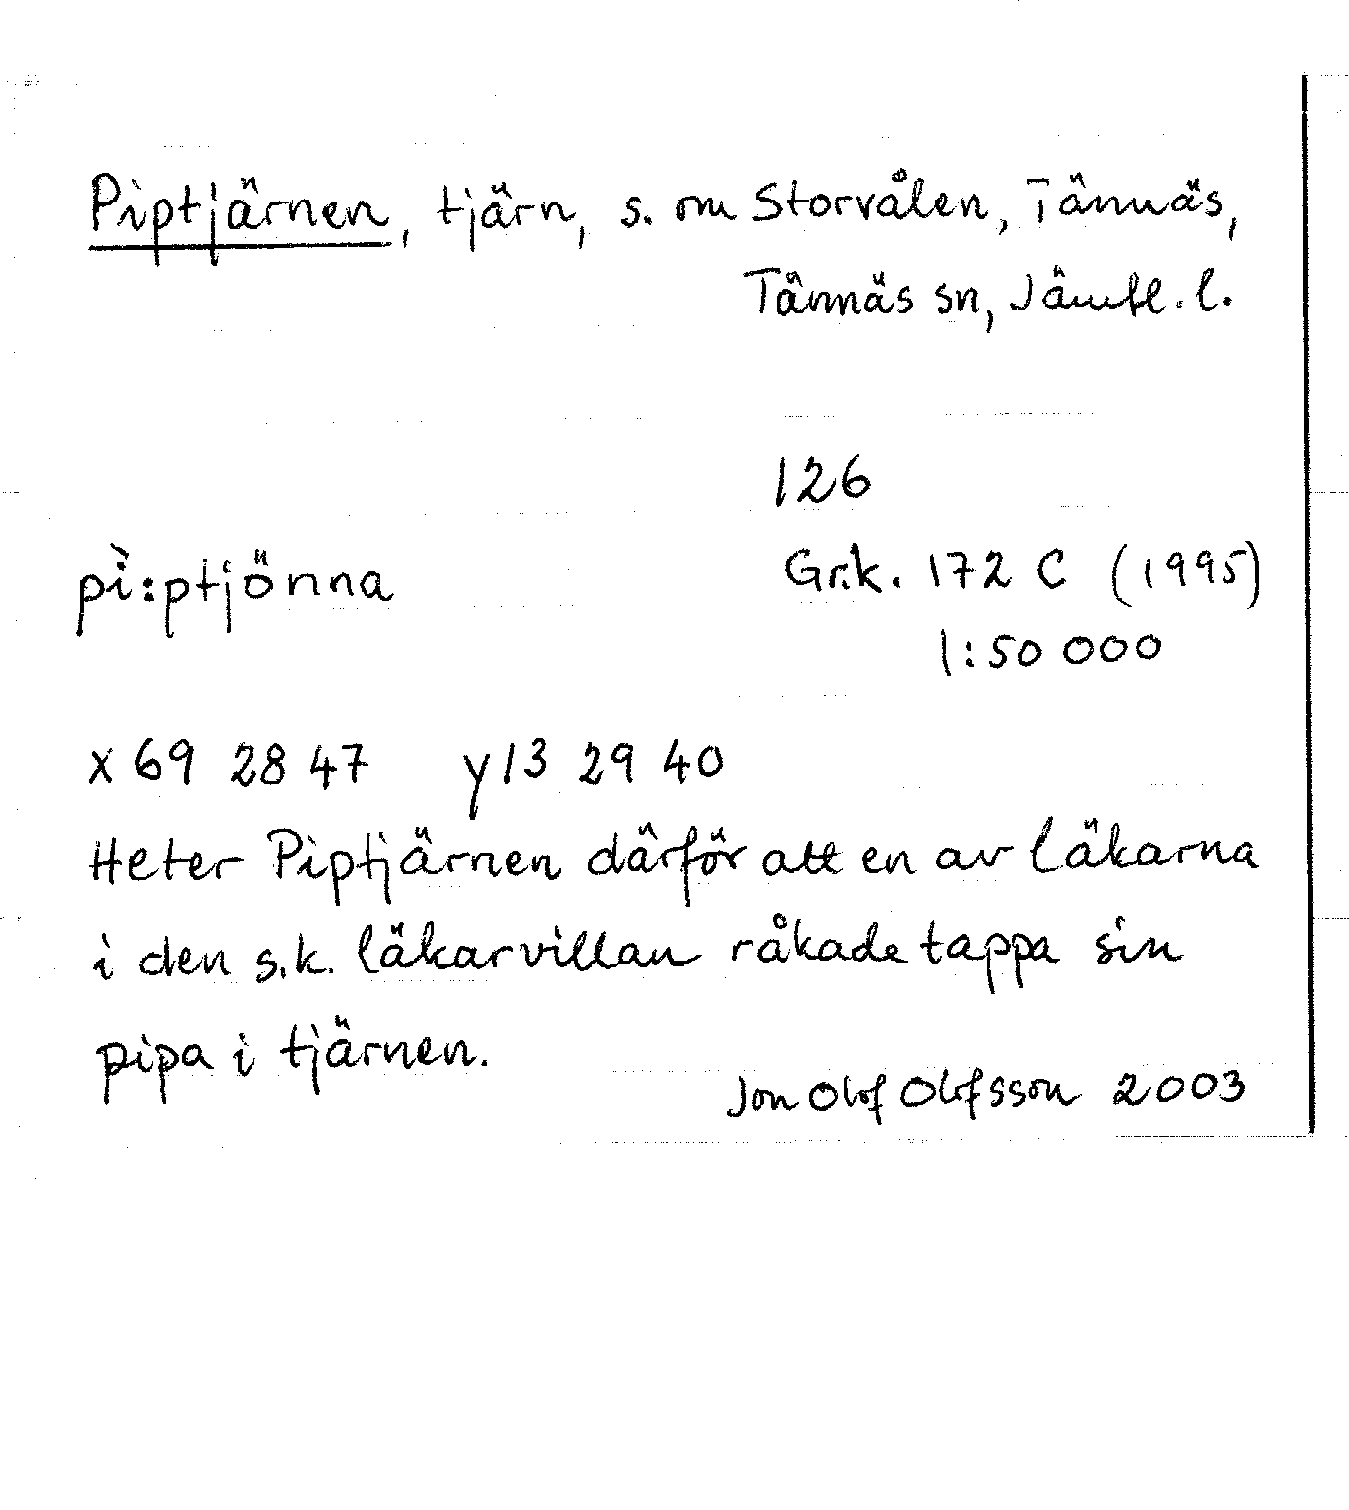 Piptjärnen, tjärn, s. om Storvålen, Tännäs,
Tännäs sn, Jämtl. l.
126
pì:ptjönna
Gr.k. 172 C (1995)
1:50 000
x 69 28 47 y 13 29 40
Heter Piptjärnen därför att en av läkarna
i den s.k. läkarvillan råkade tappa sin
pipa i tjärnen.
Jon Olof Olofsson 2003